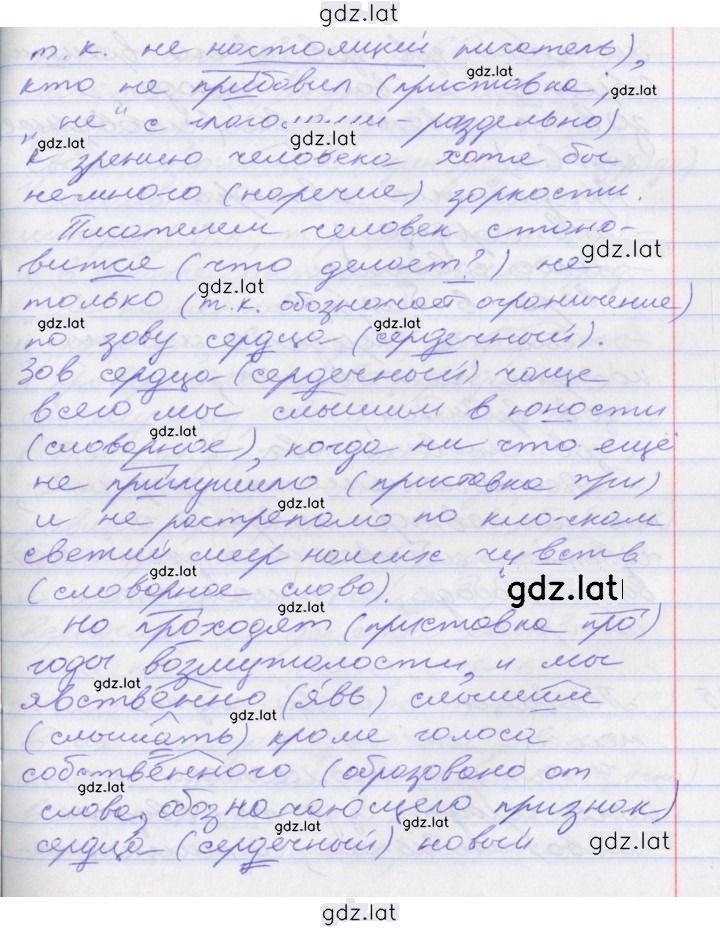 gdz.lat
т.к. не настоящий писатель),
кто не прибавил (приставка;
gdz.lat
gdz.lat
„не“ с глаголами - раздельно)
gdz.lat
gdz.lat
к зрению человека хотя бы
немного (наречие) зоркости.
Писателем человек стано-
gdz.lat
вится (что делает?) не
gdz.lat
только (т.к. обозначает ограничение)
gdz.lat
gdz.lat
по зову сердца (сердечный).
Зов сердца (сердечный) чаще
всего мы слышим в юности
gdz.lat
(словарное), когда ни что ещё
не приглушило (приставка при)
gdz.lat
и не растрепало по клочкам
светлый мир наших чувств
gdz.lat
gdz.lat
(словарное слово).
gdz.lat
Но проходят (приставка про)
годы возмужалости, и мы
gdz.lat
явственно (явь) слышим
gdz.lat
(слышать) кроме голоса
собственного (образовано от
gdz.lat
слова, обозначающего признак)
gdz.lat
gdz.lat
gdz.lat
сердца (сердечный) новый
gdz.lat